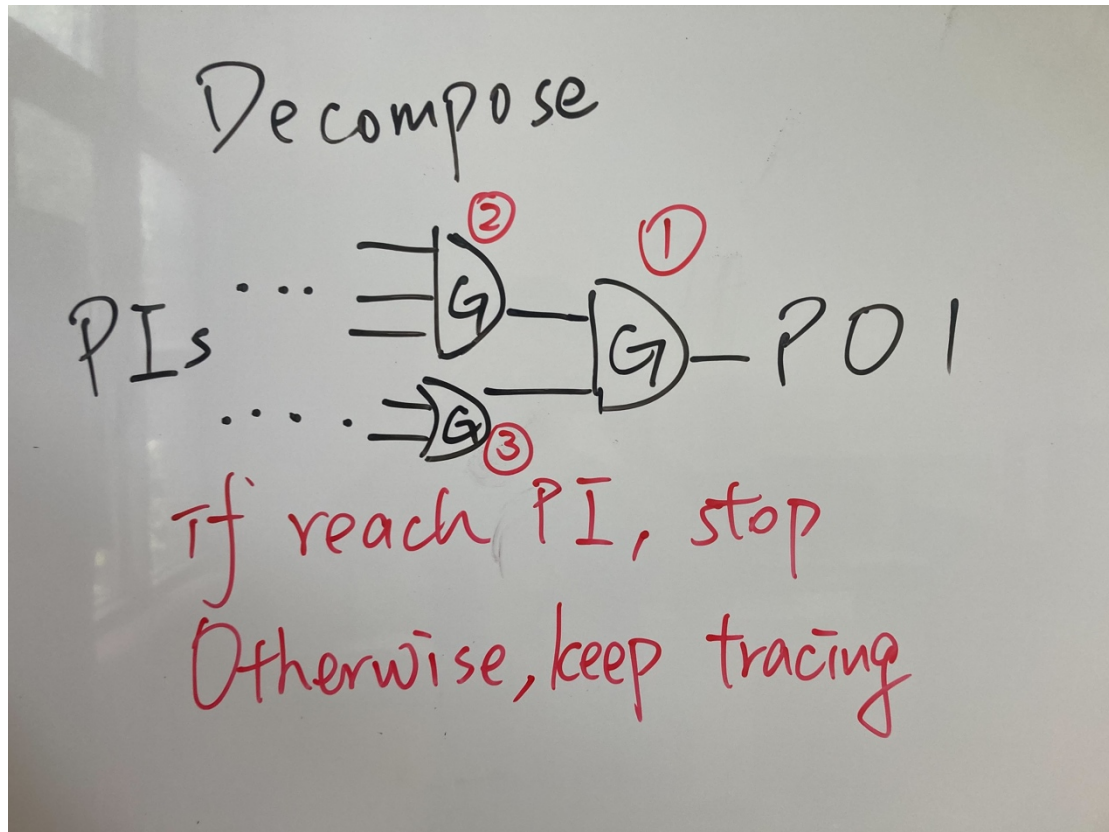 Decompose
② ①
G
PIs ... G PO1
.... G ③
If reach PI, stop
Otherwise, keep tracing